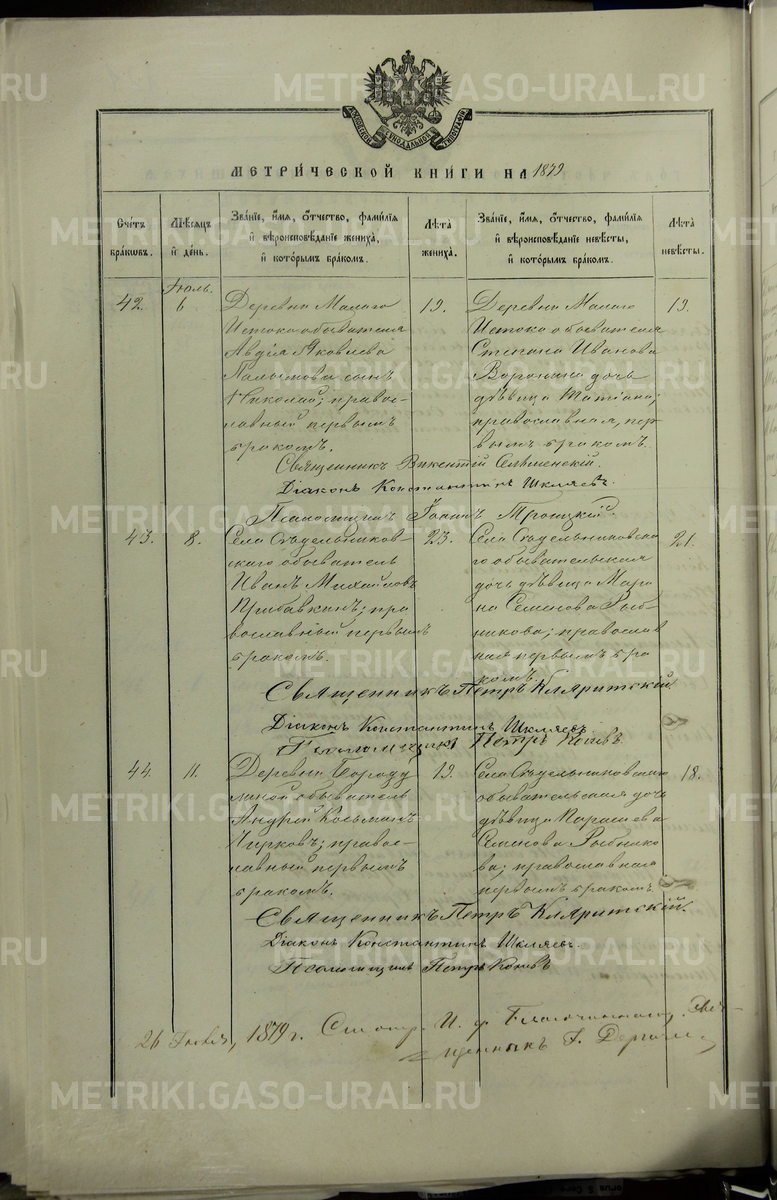 МЕТРИЧЕСКОЙ КНИГИ НА 1879
Счётъ браковъ.
Мѣсяцъ и день.
Званіе, имя, отчество, фамилія и вѣроисповѣданіе жениха, и которымъ бракомъ.
Лѣта жениха.
Званіе, имя, отчество, фамилія и вѣроисповѣданіе невѣсты, и которымъ бракомъ.
Лѣта невѣсты.
42.
Іюль.
6
Деревни Малаго
Истока обывателя
Авдія Яковлева
сынъ
Николай; право-
славный первымъ
бракомъ.
19.
Деревни Малаго
Истока обывателя
Степана Иванова
Воронина дочь
дѣвица Татіана;
православная, пер-
вымъ бракомъ.
19.
Священникъ Викентій
Діаконъ Константинъ Шкляевъ.
Псаломщикъ Іоаннъ Троицкій.
43.
8.
Села Сѣдельников-
скаго обыватель
Иванъ Михайловъ
Прибавкинъ; пра
вославный первымъ
бракомъ.
23.
Села Сѣдельниковска
го обывательская
дочь дѣвица Мари
на Семенова Рыб-
никова; православ
ная первымъ бра
комъ.
21.
Священникъ Петръ Кляритскій
Діаконъ Константинъ Шкляевъ
Псаломщикъ Петръ
44.
11.
Деревни
обыватель
Андрей Косьминъ
Чирковъ; правос-
лавный первымъ
бракомъ.
19.
Села Сѣдельниковскаго
обывательская дочь
дѣвица
Семенова Рыбнико
ва; православная
первымъ бракомъ.
18.
Священникъ Петръ Кляритскій.
Діаконъ Константинъ Шкляевъ.
Псаломщикъ Петръ
26 1879 г. И. д. Благочиннаго, Свя-
щенникъ
METRIKI.GASO-URAL.RU